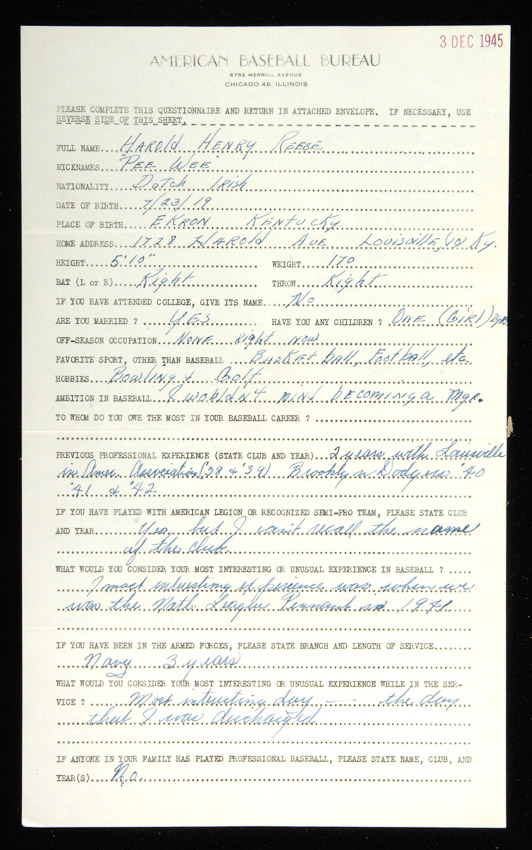 3 DEC 1945
AMERICAN BASEBALL BUREAU
6732 MERRILL AVENUE
CHICAGO 49, ILLINOIS
PLEASE COMPLETE THIS QUESTIONNAIRE AND RETURN IN ATTACHED ENVELOPE. IF NECESSARY, USE
REVERSE SIDE OF THIS SHEET.
FULL NAME....HAROLD HENRY REESE
NICKNAMES..."PEE WEE"
NATIONALITY....Dutch Irish
DATE OF BIRTH...7/23/19
PLACE OF BIRTH...EKRON KENTUCKY
HOME ADDRESS...1728 HAROLD AVE LOUISVILLE, (10) Ky.
HEIGHT...5'10" WEIGHT...170
BAT (L or R)...Right THROW...Right
IF YOU HAVE ATTENDED COLLEGE, GIVE ITS NAME...No
ARE YOU MARRIED ?...YES HAVE YOU ANY CHILDREN ? ONE (GIRL) 2yrs
OFF-SEASON OCCUPATION...NONE right now
FAVORITE SPORT, OTHER THAN BASEBALL...Basket ball, Football, etc
HOBBIES...Bowling & Golf
AMBITION IN BASEBALL...I wouldn't mind becoming a Mgr.
TO WHOM DO YOU OWE THE MOST IN YOUR BASEBALL CAREER ?
PREVIOUS PROFESSIONAL EXPERIENCE (STATE CLUB AND YEAR)...2 years with Louisville
in Amer. Association ('38 & '39) Brooklyn Dodgers '40
'41 & '42
IF YOU HAVE PLAYED WITH AMERICAN LEGION OR RECOGNIZED SEMI-PRO TEAM, PLEASE STATE CLUB
AND YEAR...Yes, but I can't recall the name
of the club.
WHAT WOULD YOU CONSIDER YOUR MOST INTERESTING OR UNUSUAL EXPERIENCE IN BASEBALL ?
I most interesting experience was when we
won the Natl. League Pennant in 1941.
IF YOU HAVE BEEN IN THE ARMED FORCES, PLEASE STATE BRANCH AND LENGTH OF SERVICE
Navy 3 years
WHAT WOULD YOU CONSIDER YOUR MOST INTERESTING OR UNUSUAL EXPERIENCE WHILE IN THE SER-
VICE ?...Most interesting day -- the day
that I was discharged
IF ANYONE IN YOUR FAMILY HAS PLAYED PROFESSIONAL BASEBALL, PLEASE STATE NAME, CLUB, AND
YEAR(S)...No.